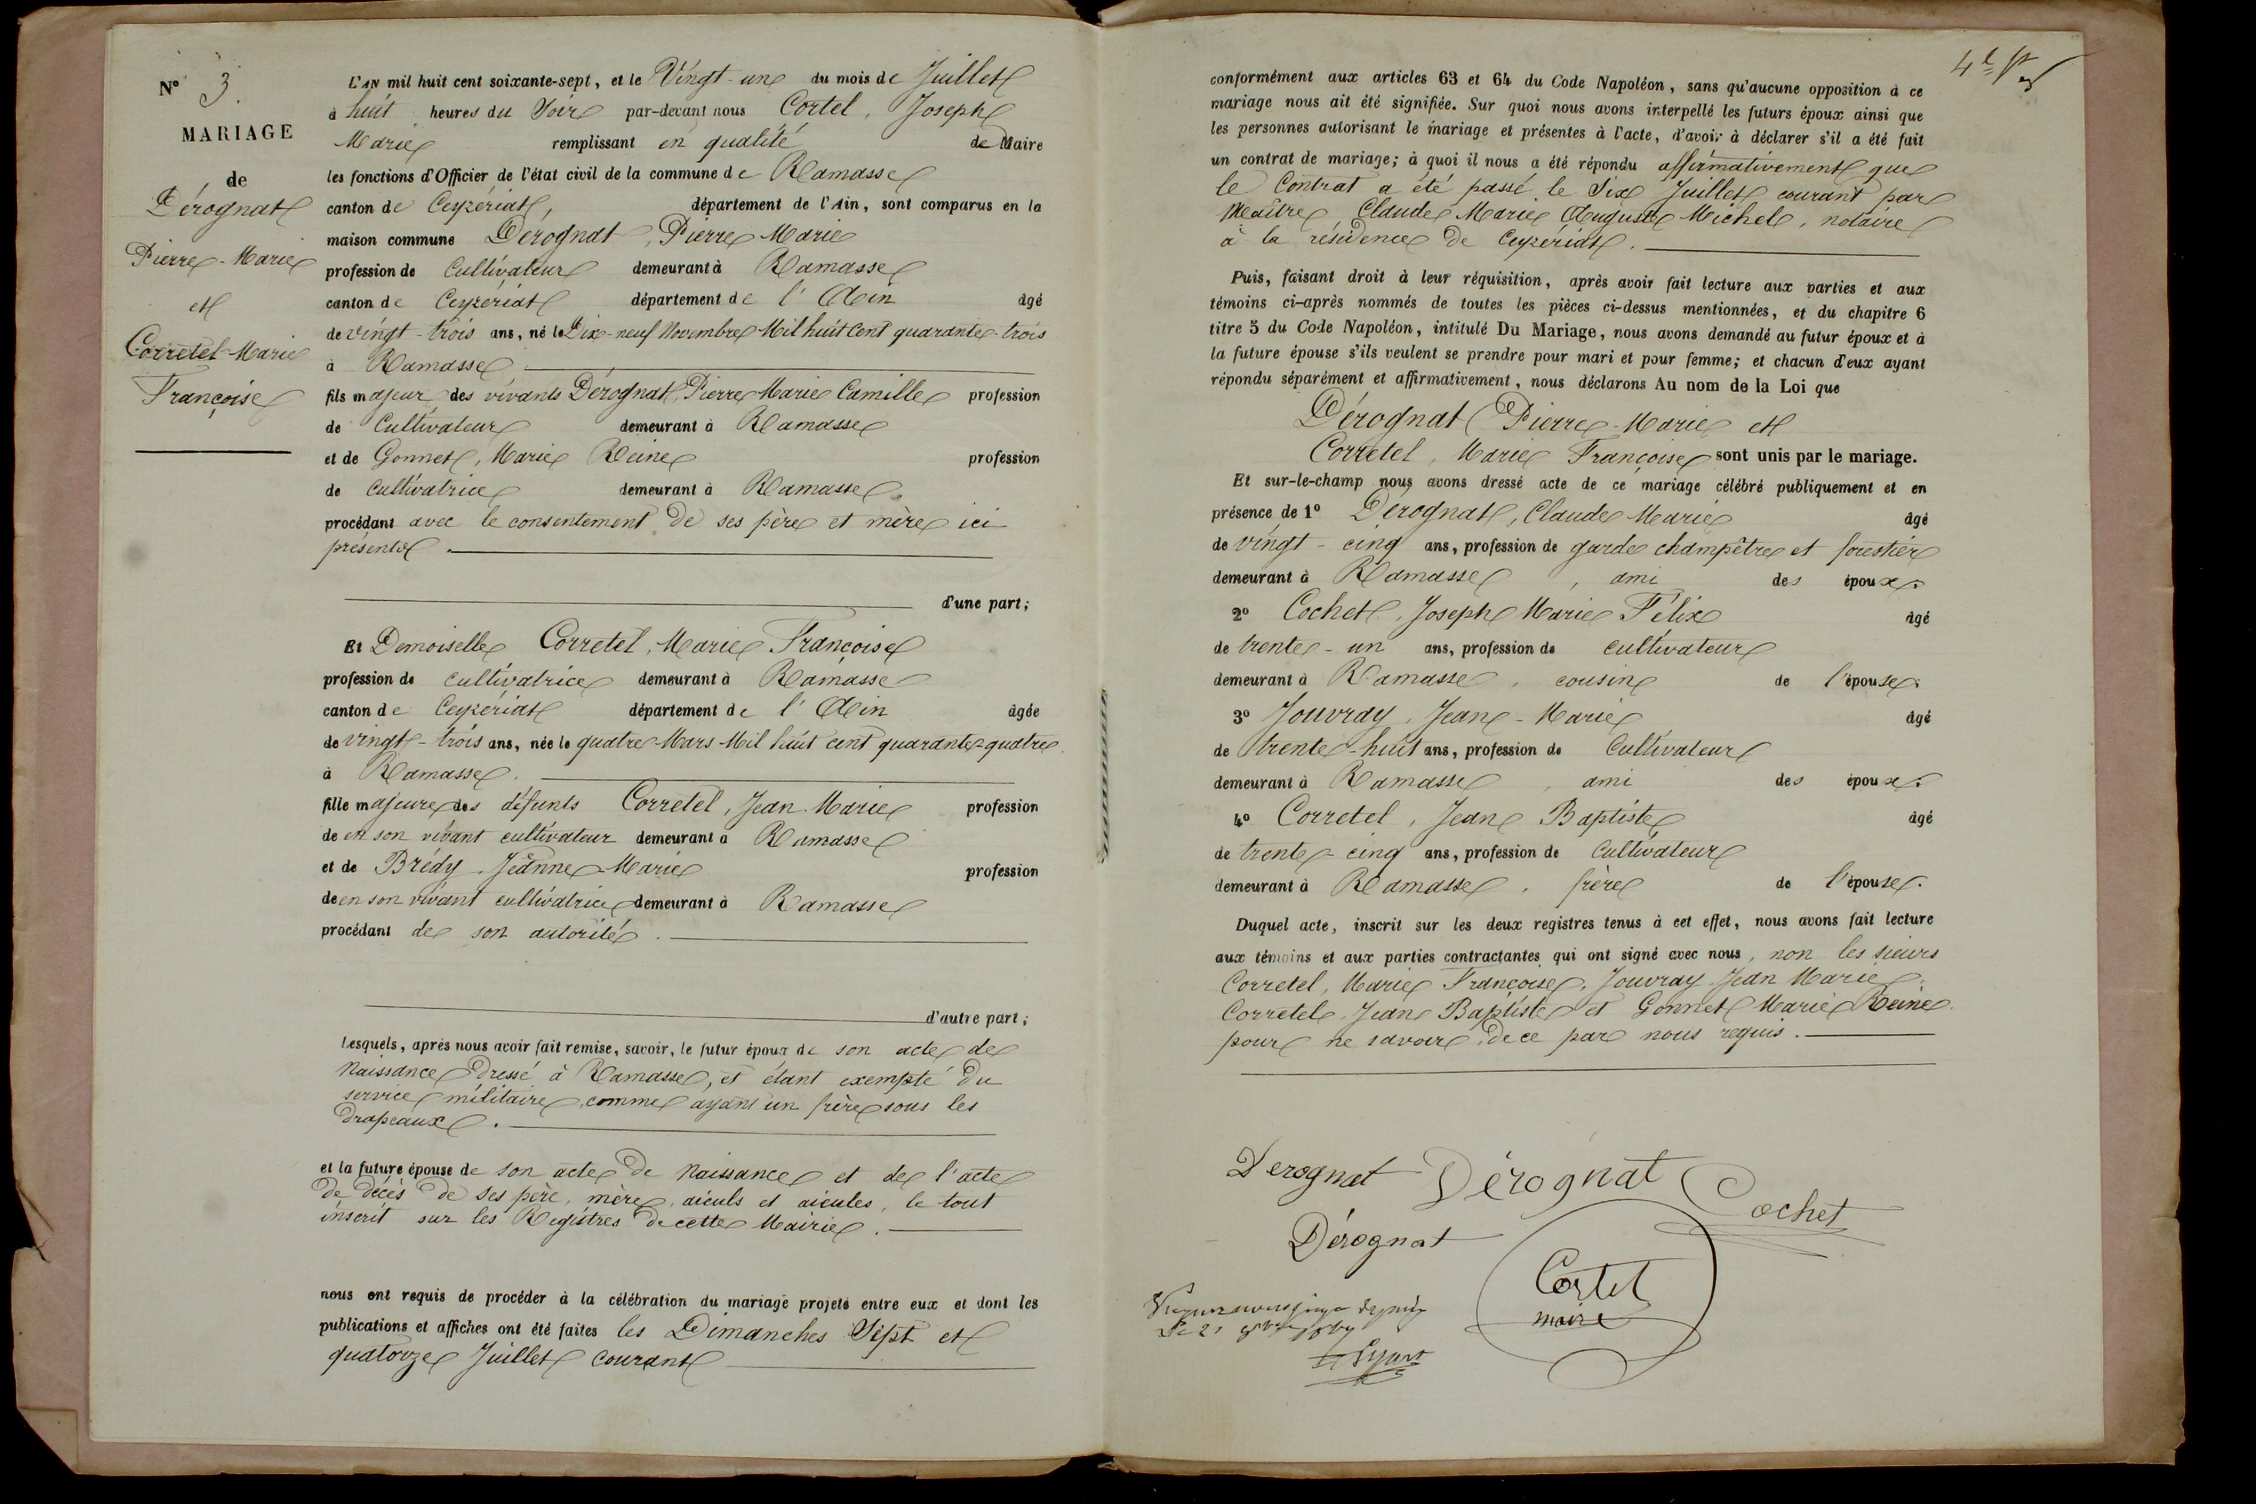 N° 3.
MARIAGE
de
Dérognat
Pierre-Marie
et
Corretel Marie
Françoise
L'AN mil huit cent soixante-sept, et le Vingt-un du mois de Juillet
à huit heures du Soir par-devant nous Cortel, Joseph
Marie remplissant en qualité de Maire
les fonctions d'Officier de l'état civil de la commune de Ramasse
canton de Ceyzériat, département de l'Ain, sont comparus en la
maison commune Dérognat, Pierre Marie
profession de Cultivateur demeurant à Ramasse
canton de Ceyzériat département de l'Ain âgé
de vingt-trois ans, né le Dix-neuf Novembre Mil huit Cent quarante-trois
à Ramasse
fils majeur des vivants Dérognat, Pierre Marie Camille profession
de Cultivateur demeurant à Ramasse
et de Gonnet, Marie Reine profession
de Cultivatrice demeurant à Ramasse
procédant avec le consentement de ses père et mère ici
présents
d'une part;
Et Demoiselle Corretel, Marie Françoise
profession de cultivatrice demeurant à Ramasse
canton de Ceyzériat département de l'Ain âgée
de vingt-trois ans, née le quatre Mars Mil huit cent quarante-quatre
à Ramasse.
fille majeure des défunts Corretel, Jean Marie profession
de en son vivant cultivateur demeurant à Ramasse
et de Brédy, Jeanne Marie profession
de en son vivant cultivatrice demeurant à Ramasse
procédant de son autorité.
d'autre part;
Lesquels, après nous avoir fait remise, savoir, le futur époux de son acte de
Naissance dressé à Ramasse, et étant exempté du
service militaire, comme ayant un frère sous les
drapeaux.
et la future épouse de son acte de Naissance et de l'acte
de décès de ses père, mère, aieuls et aieules, le tout
inscrit sur les Registres de cette Mairie.
nous ont requis de procéder à la célébration du mariage projeté entre eux et dont les
publications et affiches ont été faites les Dimanches Sept et
quatorze Juillet courant
conformément aux articles 63 et 64 du Code Napoléon, sans qu'aucune opposition à ce
mariage nous ait été signifiée. Sur quoi nous avons interpellé les futurs époux ainsi que
les personnes autorisant le mariage et présentes à l'acte, d'avoir à déclarer s'il a été fait
un contrat de mariage; à quoi il nous a été répondu affirmativement que
le Contrat a été passé le Six Juillet courant par
Maître Claude Marie Auguste Michel, notaire
à la résidence de Ceyzériat.
Puis, faisant droit à leur réquisition, après avoir fait lecture aux parties et aux
témoins ci-après nommés de toutes les pièces ci-dessus mentionnées, et du chapitre 6
titre 5 du Code Napoléon, intitulé Du Mariage, nous avons demandé au futur époux et à
la future épouse s'ils veulent se prendre pour mari et pour femme; et chacun d'eux ayant
répondu séparément et affirmativement, nous déclarons Au nom de la Loi que
Dérognat Pierre-Marie et
Corretel, Marie Françoise sont unis par le mariage.
Et sur-le-champ nous avons dressé acte de ce mariage célébré publiquement et en
présence de 1° Dérognat, Claude Marie âgé
de vingt-cinq ans, profession de garde champêtre et forestier
demeurant à Ramasse, ami des époux.
2° Cochet, Joseph Marie Félix âgé
de trente-un ans, profession de cultivateur
demeurant à Ramasse, cousin de l'épouse.
3° Jouvray, Jean-Marie âgé
de trente-huit ans, profession de Cultivateur
demeurant à Ramasse, ami des époux.
4° Corretel, Jean Baptiste âgé
de trente-cinq ans, profession de Cultivateur
demeurant à Ramasse, frère de l'épouse.
Duquel acte, inscrit sur les deux registres tenus à cet effet, nous avons fait lecture
aux témoins et aux parties contractantes qui ont signé avec nous, non les sieurs
Corretel, Marie Françoise, Jouvray Jean Marie,
Corretel, Jean Baptiste et Gonnet Marie Reine
pour ne savoir, de ce par nous requis.
Derognat Dérognat Cochet
Dérognat
Cortel
maire